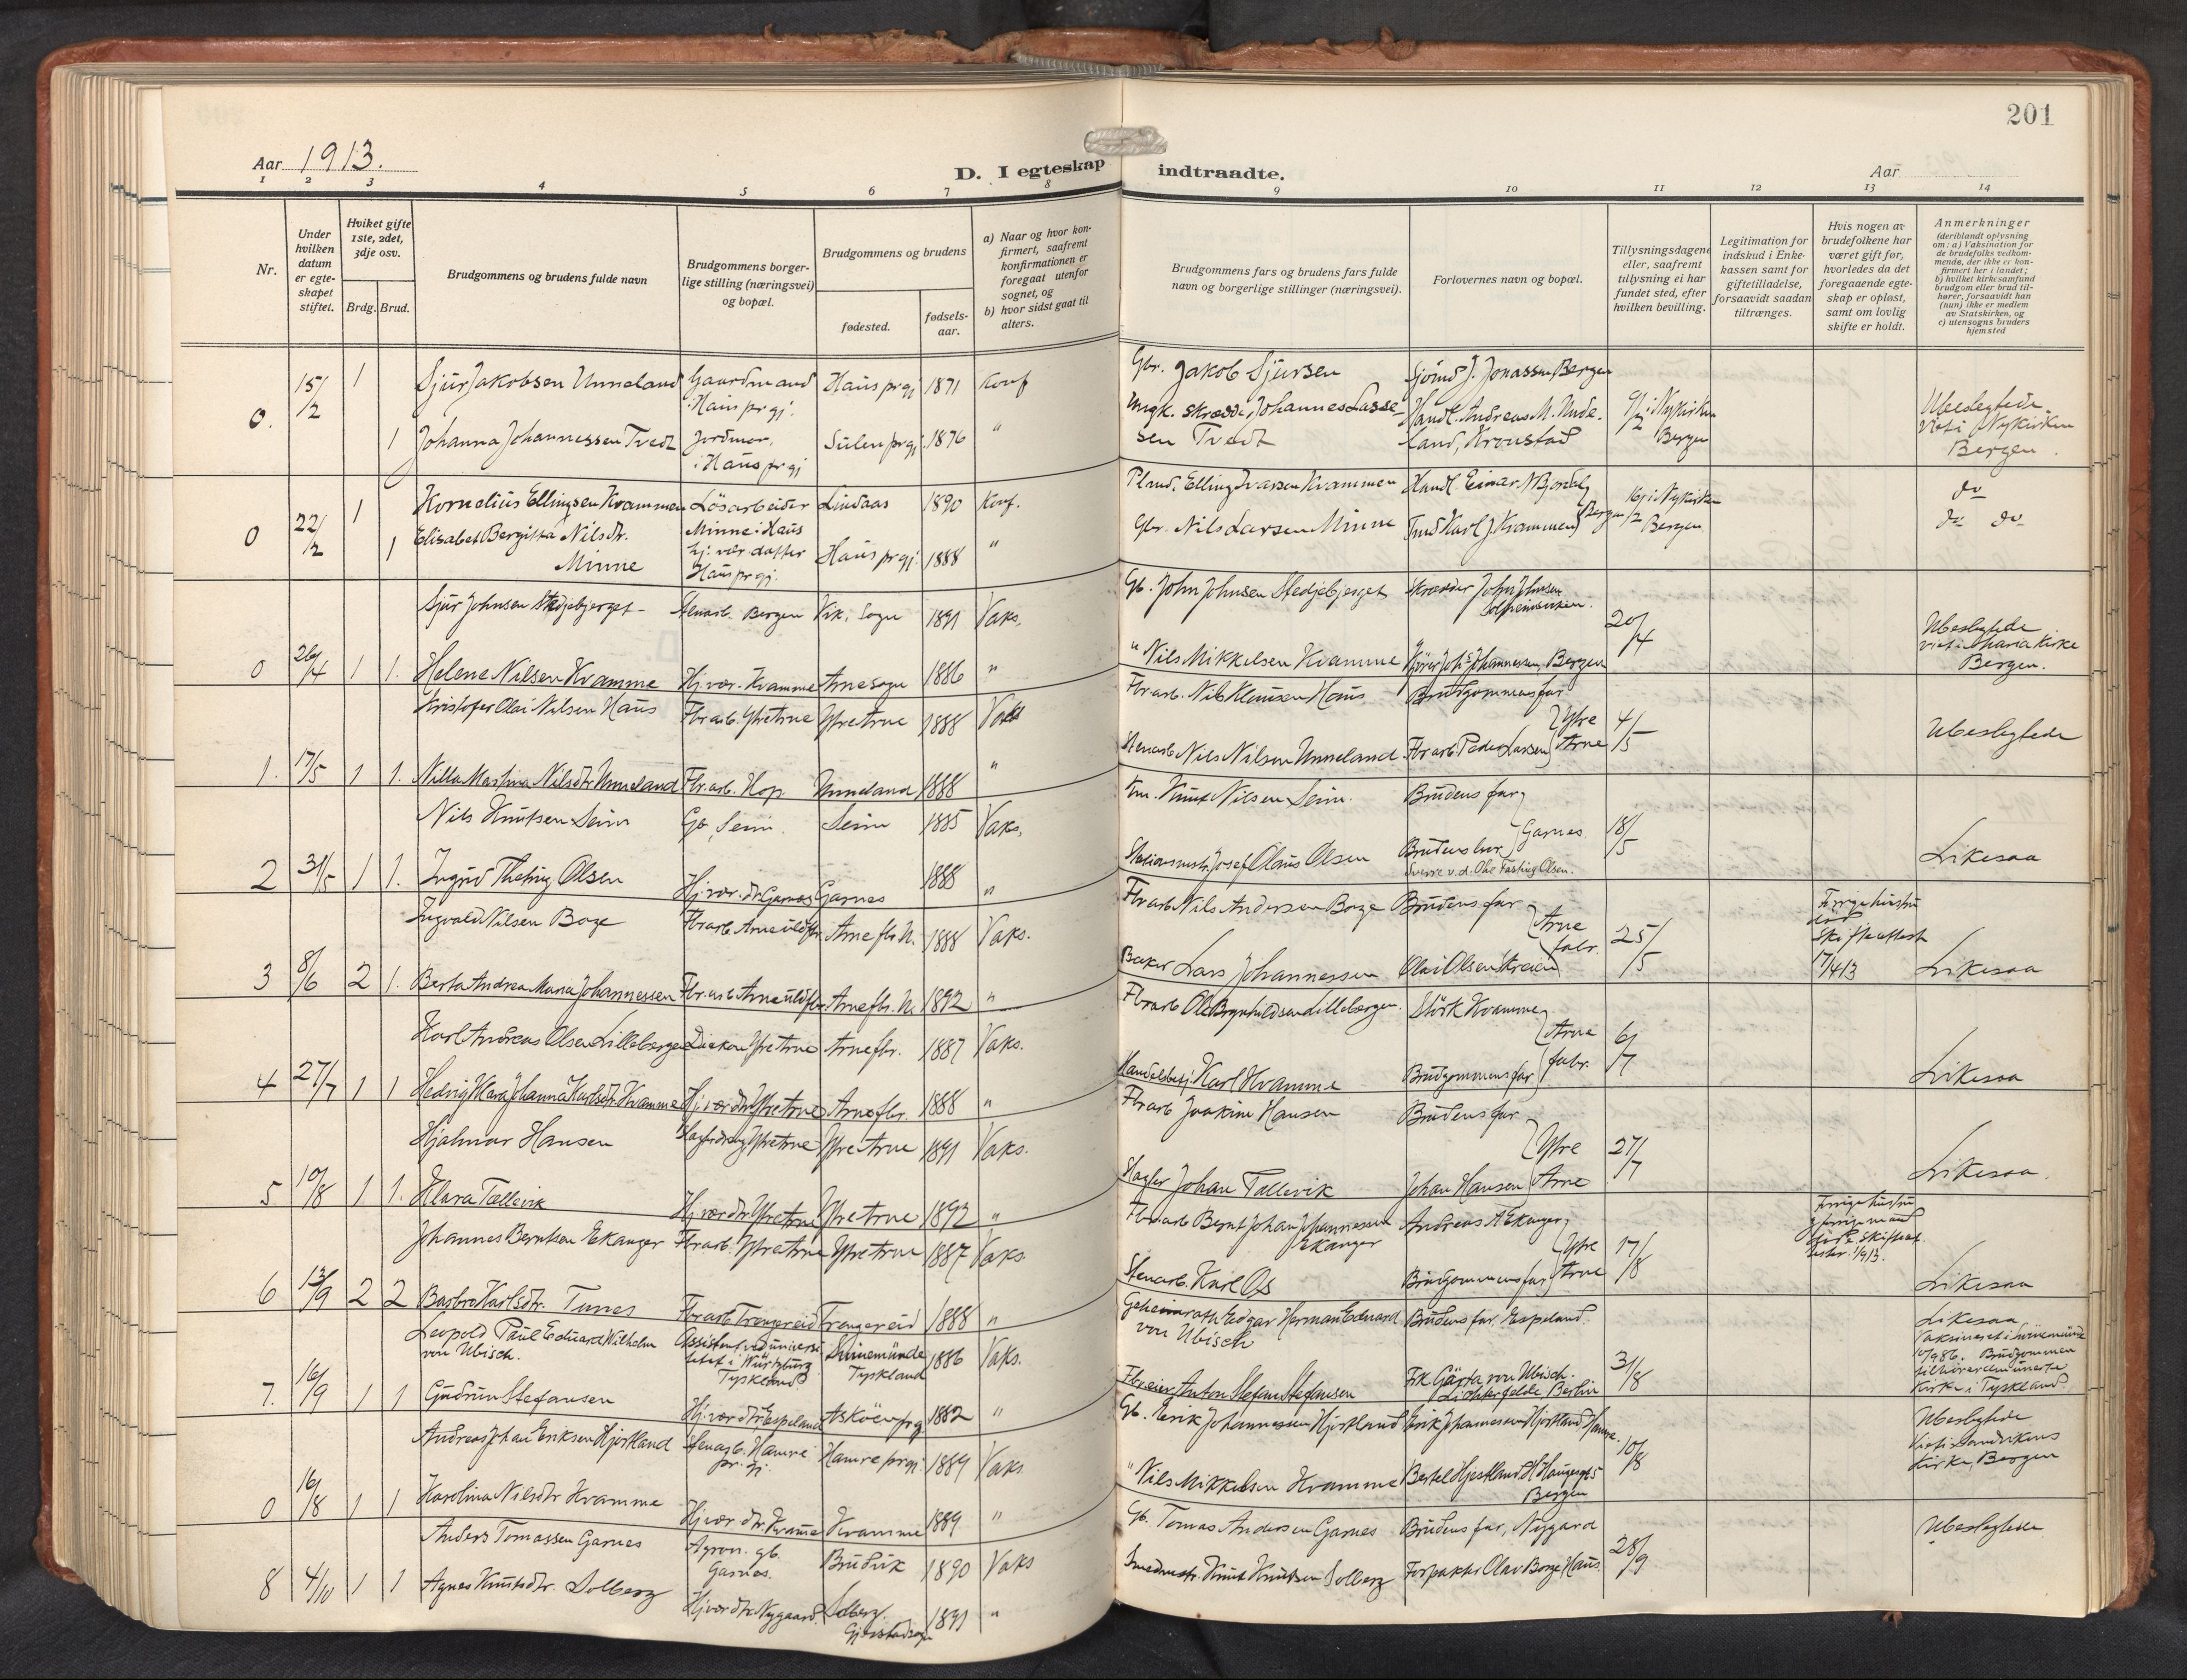 201
Aar 1913.
D. I egteskap indtraadte.
Aar
1 2 3 4 5 6 7 8 9 10 11 12 13 14
Nr.
Under hvilken datum er egteskapet stiftet.
Hviket gifte 1ste, 2det, 3dje osv.
Brdg. Brud.
Brudgommens og brudens fulde navn
Brudgommens borgerlige stilling (næringsvei) og bopæl.
Brudgommens og brudens
fødested.
fødselsaar.
a) Naar og hvor konfirmert, saafremt konfirmationen er foregaat utenfor sognet, og
b) hvor sidst gaat til alters.
Brudgommens fars og brudens fars fulde navn og borgerlige stillinger (næringsvei).
Forlovernes navn og bopæl.
Tillysningsdagene eller, saafremt tillysning ei har fundet sted, efter hvilken bevilling.
Legitimation for indskud i Enkekassen samt for giftetilladelse, forsaavidt saadan tiltrænges.
Hvis nogen av brudefolkene har været gift før, hvorledes da det foregaaende egteskap er opløst, samt om lovlig skifte er holdt.
Anmerkninger (deriblandt oplysning om: a) Vaksination for de brudefolks vedkommende, der ikke er konfirmert her i landet; b) hvilket kirkesamfund brudgom eller brud tilhører, forsaavidt han (hun) ikke er medlem av Statskirken, og c) utensogns bruders hjemsted
0. 15/2 1 Sjur Jakobsen Unneland Gaardmand i Haus prgj. Haus prgj 1871 Konf Gbr. Jakob Sjursen Sjömd J. Jonassen Bergen
1 Johanna Johannessen Tvedt Jordmor, i Haus prgj Sulen prgj. 1876 " Ungk. skrædder Johannes Lassesen Tvedt Handl. Andreas M. Undeland, Kronstad 9/2 i Nykirken Bergen Ubeslegtede Viet i Nykirken Bergen.
0 22/2 1 Kornelius Ellingsen Kvammen Lösarbeider Minne i Haus Lindaas 1890 Konf. Pladsm. Elling Ivarsen Kvammen Handl. Einar N Bjordal do
1 Elisabet Bergitta Nilsdtr. Minne Hj. vær. datter Haus prgj. Haus prgj. 1888 " Gbr. Nils Larsen Minne Karl J. Kvammen Bergen 16/2 i Nykirken Bergen do do
Sjur Johnsen Stedjebjerget Stenarb. Bergen Vik, Sogn 1891 Vaks. Gb. John Johnsen Stedjebjerget Skrædder John Johnsen Solheimsviken.
0 26/4 1 1. Helene Nilsen Kvamme Hj. vær. Kvamme Arne sogn 1886 " " Nils Mikkelsen Kvamme Johannessen, Bergen 20/4 Ubeslegtede viet i Maria Kirke Bergen.
Kristofer Olai Nilsen Haus Fbrarb. Ytre Arne Ytre Arne 1888 Vaks Fbrarb. Nils Klausen Haus Brudgommens far
1. 17/5 1 1. Nilla Martina Nilsdtr Unneland Fbr. arb. Hop Unneland 1888 " Stenarb Nils Nilsen Unneland Fbrarb. Peder Larsen Ytre Arne 4/5 Ubeslegtede
Nils Knutsen Seim Gb, Seim. Seim 1885 Vaks, Knut Nilsen Seim. Brudens far
2 31/5 1 1. Ingrid Thetvig Olsen Hj. vær. dtr Garnes Garnes 1888 " Stationsmstr. Josef Olaus Olsen Brudens bror Garnes Sverre v. d. Ohe Fasting Olsen. 18/5 Likesaa
Ingvald Nilsen Borge Fbrarb. Arne uldfbr Arne fbr. N. 1888 Vaks. Fbrarb Nils Andersen Borge Brudens far Forrige hustru död Skifteattest 17/4 13
3 8/6 2 1. Berta Andrea Maria Johannessen Fbr. arb Arne uldfbr Arne fbr. N. 1892 " Baker Lars Johannessen Olai Olsen Arne fabr. 25/5 Likesaa
Karl Andreas Olsen Lilleberge Diakon Ytre Arne Arne fbr. 1887 Vaks. Fbrarb Ole Brynhildsen Lillebergen Störk Kvamme
4 27/7 1 1 Hedvig Klara Johanna Karlsdtr. Kvamme Hj. vær dtr Ytre Arne Arne fbr. 1888 " Handelsbetj. Karl Kvamme Brudgommens far Arne fabr. 6/7 Likesaa
Hjalmar Hansen Ytre Arne Ytre Arne 1891 Vaks. Fbrarb Joakim Hansen Brudens far
5 10/8 1 1. Klara Tellevik Hj. vær dtr. Ytre Arne Ytre Arne 1892 " Johan Tellevik Johan Hansen Ytre Arne 27/7 Likesaa.
Johannes Berntsen Ekanger Fbrarb. Ytre Arne Ytre Arne 1887 Vaks Fbrarb Bernt Johan Johannessen Ekanger Andreas A Ekanger Forrige hustru & forrige mand döde. Skifteattester
6 13/9 2 2 Barbra Karlsdtr. Tunes Fbrarb Trengereid Trengereid 1888 " Stenarb. Karl Os Brudgommens far Ytre Arne 17/8 Likesaa
Leopold Paul Eduard Wilhelm von Ubisch. Assistent ved universitetet i Würzburg Tyskland Swinemünde Tyskland 1886 Vaks. Geheimrath Edgar Herman Eduard von Ubisch Brudens far. Espeland. Likesaa, Vaksineret i Swinemünde Brudgommen tilhører den unerte Kirke i Tyskland.
7. 16/9 1 1 Gudrun Stefansen Hj. vær dtr Espeland Asköen prgj 1882 " Fbreier Anton Stefan Stefansen Frk Gärta von Ubisch. Lichterfelde Berlin 31/8
Andreas Johan Eriksen Hjortland Stenarb. Hamre prgj. Hamre prgj. 1889 Vaks. Gb. Erik Johannessen Hjortland Erik Johannesen Hjortland, Hamre.
0 16/8 1 1 Karolina Nilsdtr Kvamme Hj vær dtr. Kvamme Kvamme 1889 " " Nils Mikkelsen Kvamme Bertel Hjortland Bergen 10/8 Ubeslegtede Viet i Sandvikens Kirke, Bergen
Anders Tomassen Garnes Agron. gb. Garnes. Brudvik 1890 Vaks Gb. Tomas Andersen Garnes Brudens far, Nygard Ubeslegtede
8 4/10 1 1 Agnes Knutsdtr. Solberg Hj vær dtr Nygaard Solberg, Gjerstadsogn 1891 " Knut Knutsen Solberg Forpakter Olav Borge, Haus. 28/9